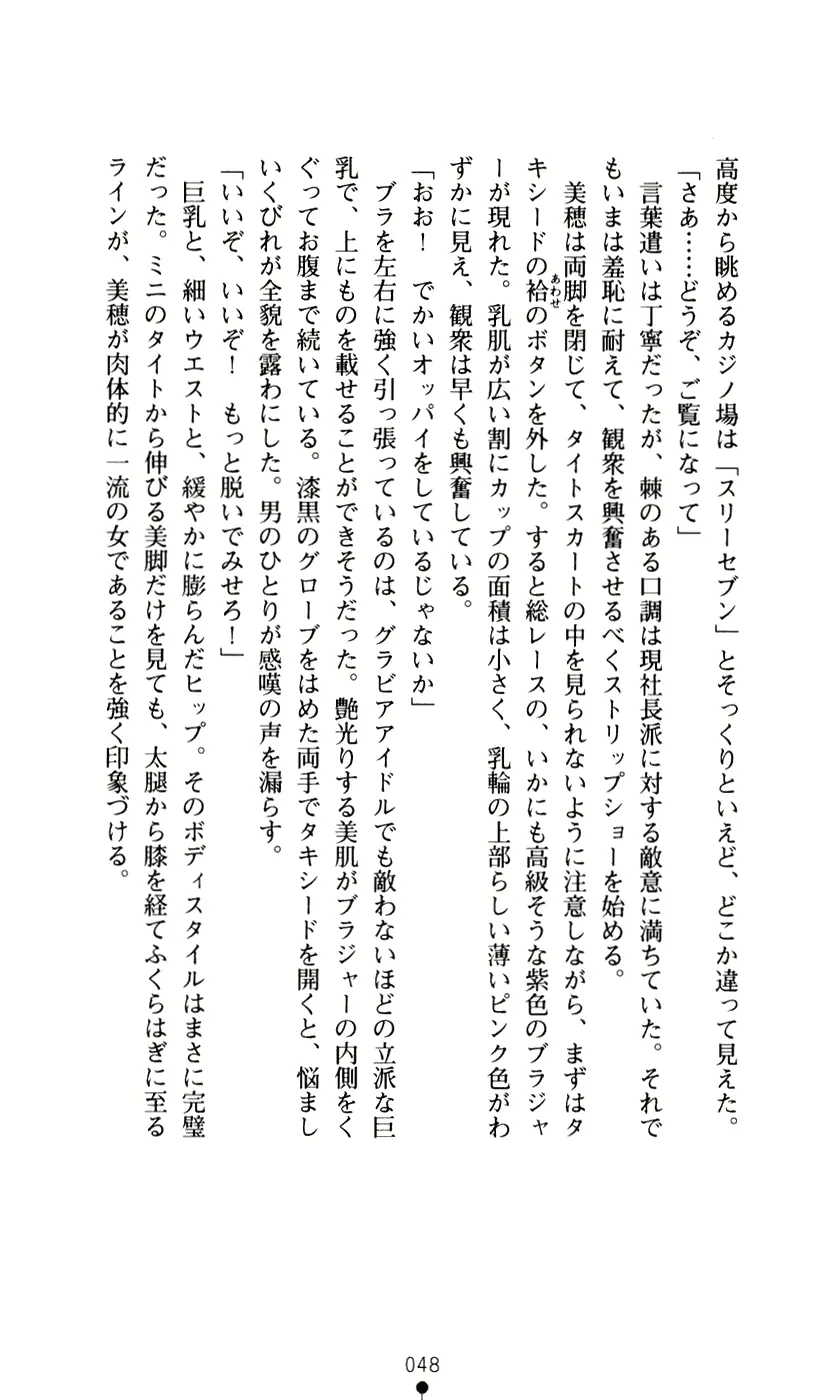 高度から眺めるカジノ場は「スリーセブン」とそっくりといえど、どこか違って見えた。
「さあ……どうぞ、ご覧になって」
言葉遣いは丁寧だったが、棘のある口調は現社長派に対する敵意に満ちていた。それで
もいまは羞恥に耐えて、観衆を興奮させるべくストリップショーを始める。
美穂は両脚を閉じて、タイトスカートの中を見られないように注意しながら、まずはタ
キシードの袷のボタンを外した。すると総レースの、いかにも高級そうな紫色のブラジャ
あわせ
ーが現れた。乳肌が広い割にカップの面積は小さく、乳輪の上部らしい薄いピンク色がわ
ずかに見え、観衆は早くも興奮している。
「おお！　でかいオッパイをしているじゃないか」
ブラを左右に強く引っ張っているのは、グラビアアイドルでも敵わないほどの立派な巨
乳で、上にものを載せることができそうだった。艶光りする美肌がブラジャーの内側をく
ぐってお腹まで続いている。漆黒のグローブをはめた両手でタキシードを開くと、悩まし
いくびれが全貌を露わにした。男のひとりが感嘆の声を漏らす。
「いいぞ、いいぞ！　もっと脱いでみせろ！」
巨乳と、細いウエストと、緩やかに膨らんだヒップ。そのボディスタイルはまさに完璧
だった。ミニのタイトから伸びる美脚だけを見ても、太腿から膝を経てふくらはぎに至る
ラインが、美穂が肉体的に一流の女であることを強く印象づける。
048